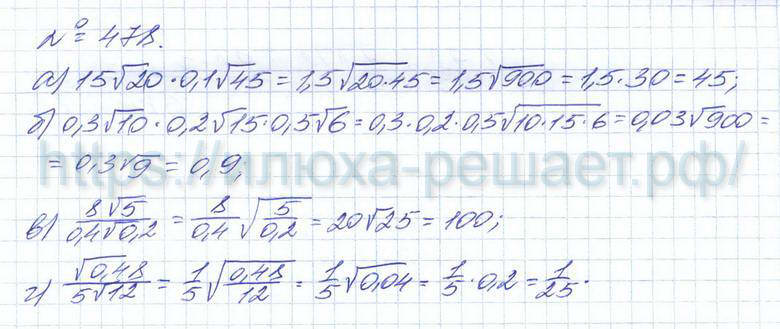 № 478.
а) 15√20 · 0,1√45 = 1,5√20·45 = 1,5√900 = 1,5·30 = 45;
б) 0,3√10 · 0,2√15 · 0,5√6 = 0,3·0,2·0,5√10·15·6 = 0,03√900 =
= 0,3√9 = 0,9;
https://илюха-решает.рф/
в) 8√5/0,4√0,2 = 8/0,4 √5/0,2 = 20√25 = 100;
г) √0,48/5√12 = 1/5 √0,48/12 = 1/5 √0,04 = 1/5 · 0,2 = 1/25.